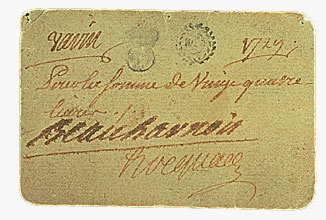 Varin 1729
Pour la somme de Vingt quatre
livres
Beauharnois
Hocquart